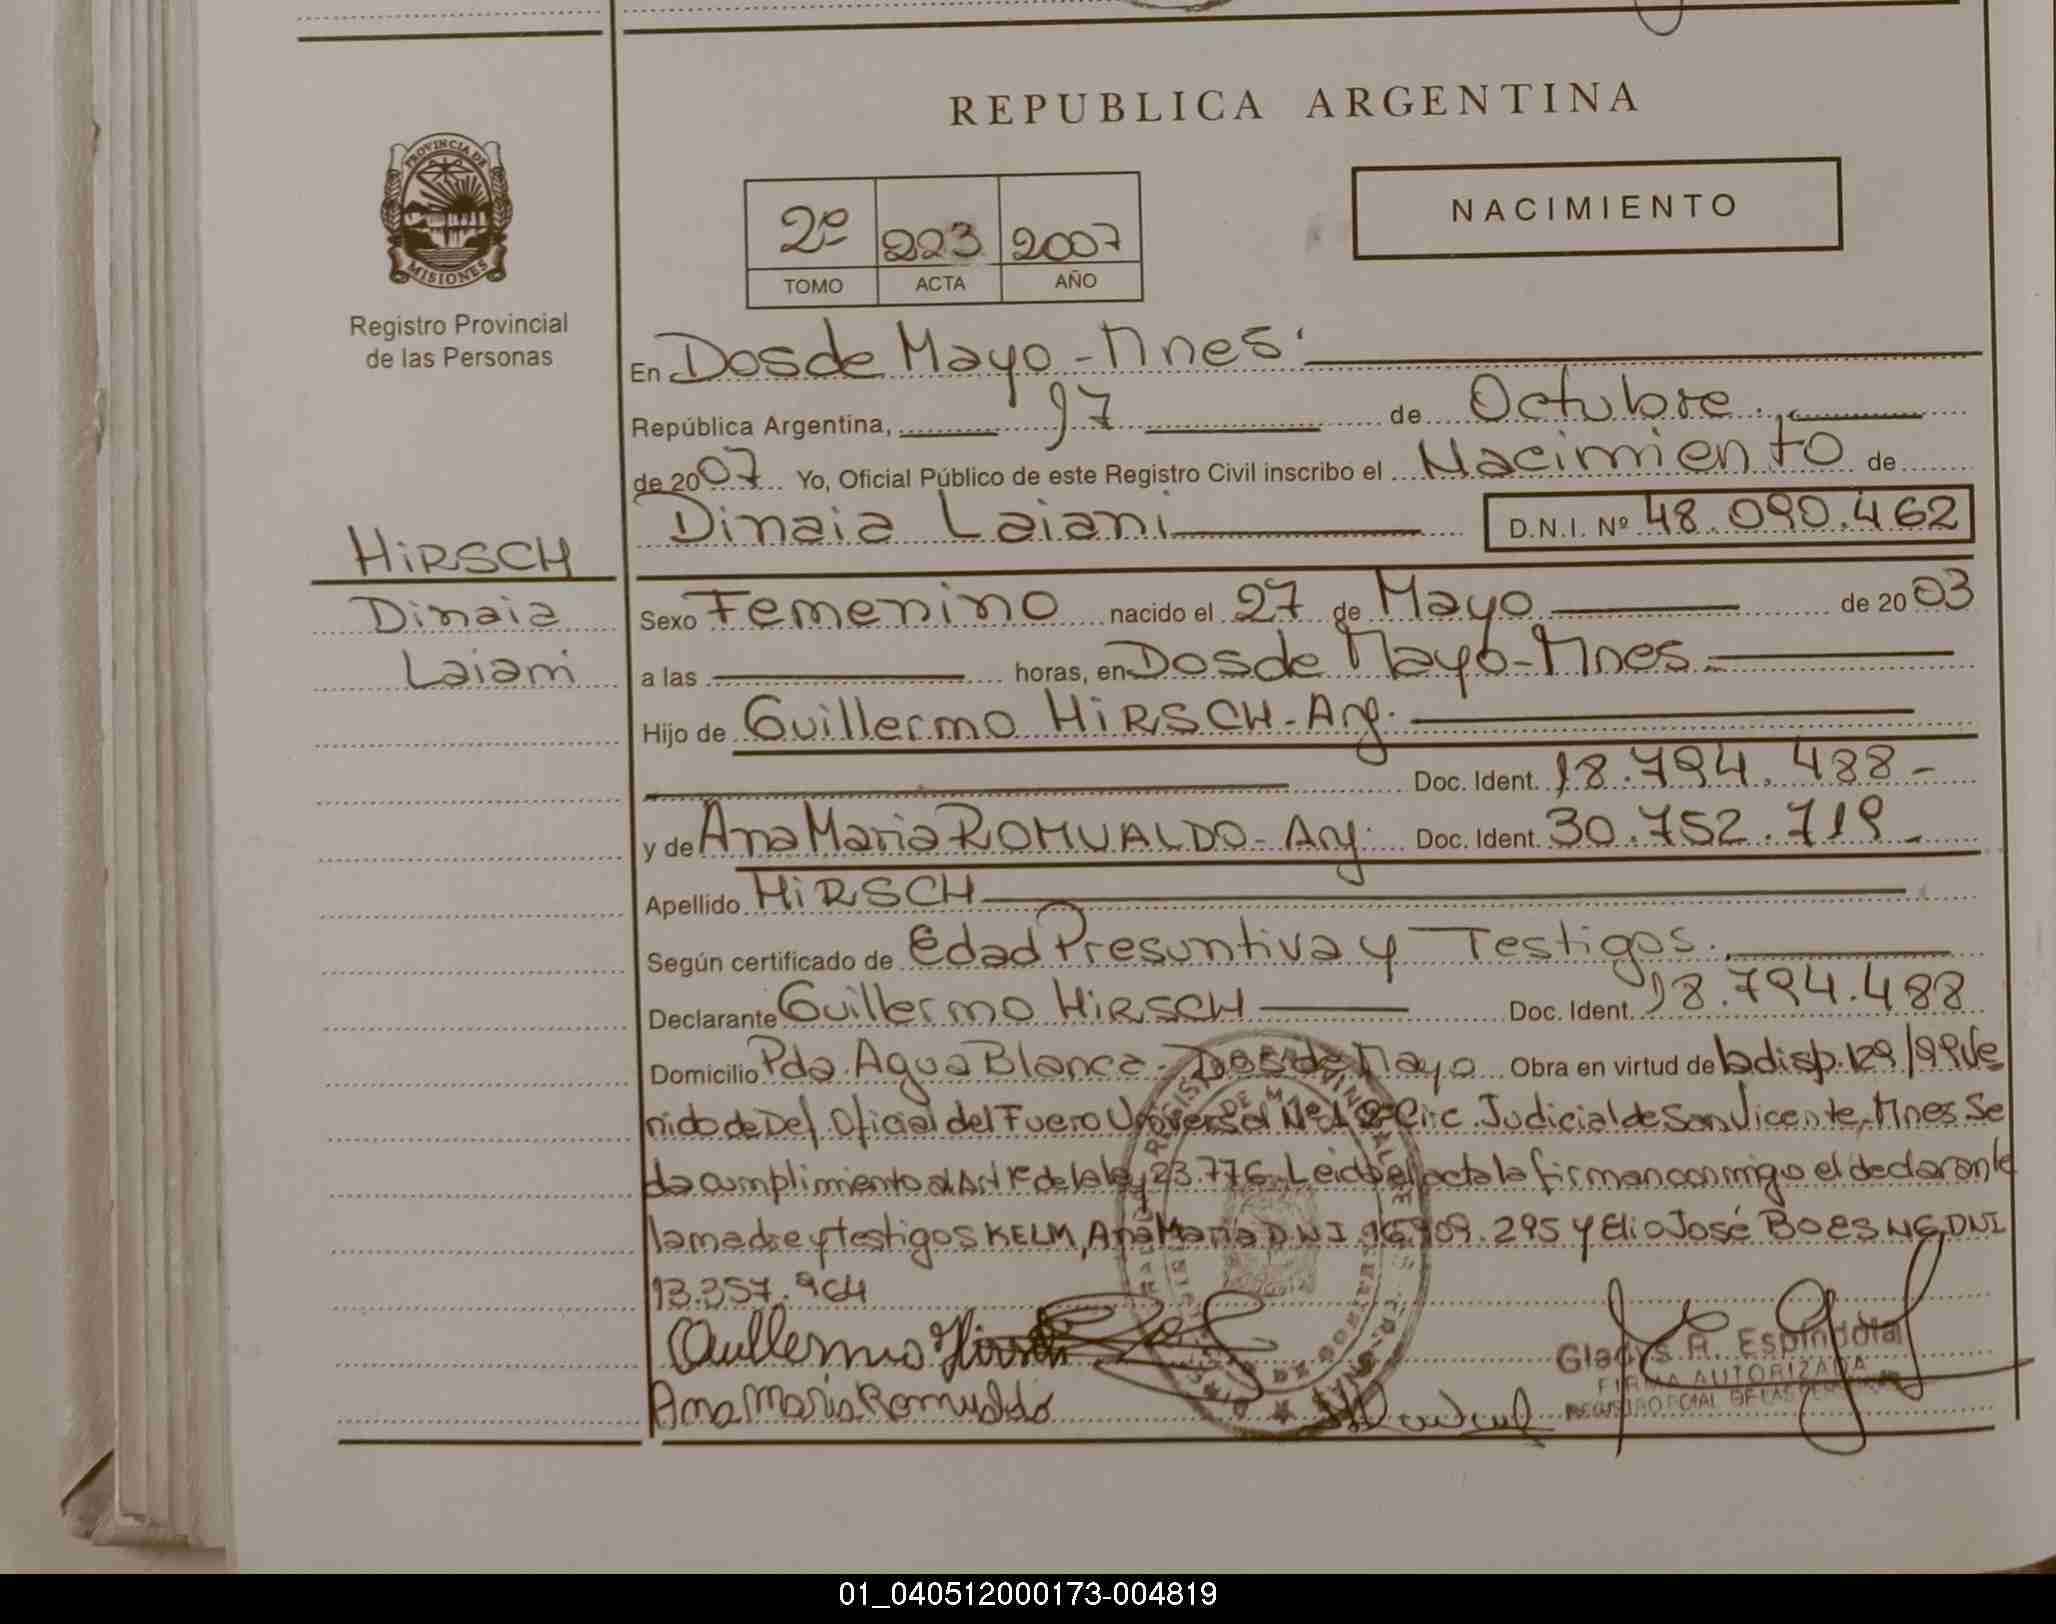 REPUBLICA ARGENTINA
NACIMIENTO
PROVINCIA DE
MISIONES
Registro Provincial
de las Personas
2º 223 2007
TOMO ACTA AÑO
En Dos de Mayo - Mnes.
República Argentina, 17 de Octubre
de 2007 Yo, Oficial Público de este Registro Civil inscribo el Nacimiento de
Dinaia Laiani D.N.I. Nº 48.090.462
HIRSCH
Dinaia
Laiani
Sexo Femenino nacido el 27 de Mayo de 2003
a las horas, en Dos de Mayo - Mnes.
Hijo de Guillermo HIRSCH - Arg.
Doc. Ident. 18.794.488 -
y de Ana Maria ROMUALDO - Arg. Doc. Ident. 30.752.719 -
Apellido HIRSCH
Según certificado de Edad Presuntiva y Testigos.
Declarante Guillermo HIRSCH Doc. Ident. 18.794.488
Domicilio Pda. Agua Blanca - Dos de Mayo Obra en virtud de la disp. 129/99 Ve
nido de Def. Oficial del Fuero Universal Nº 1 2º Circ. Judicial de San Vicente, Mnes Se
da cumplimiento al Art 1º de la ley 23.776 - Leida el acta la firman conmigo el declarante
la madre y testigos KELM, Ana Maria D N I 16.909.295 y Elio José BOESNG, DNI
13.357.964
Guillermo Hirsch
Ana Maria Romualdo
Gladys A. Espindola
FIRMA AUTORIZADA
01_040512000173-004819